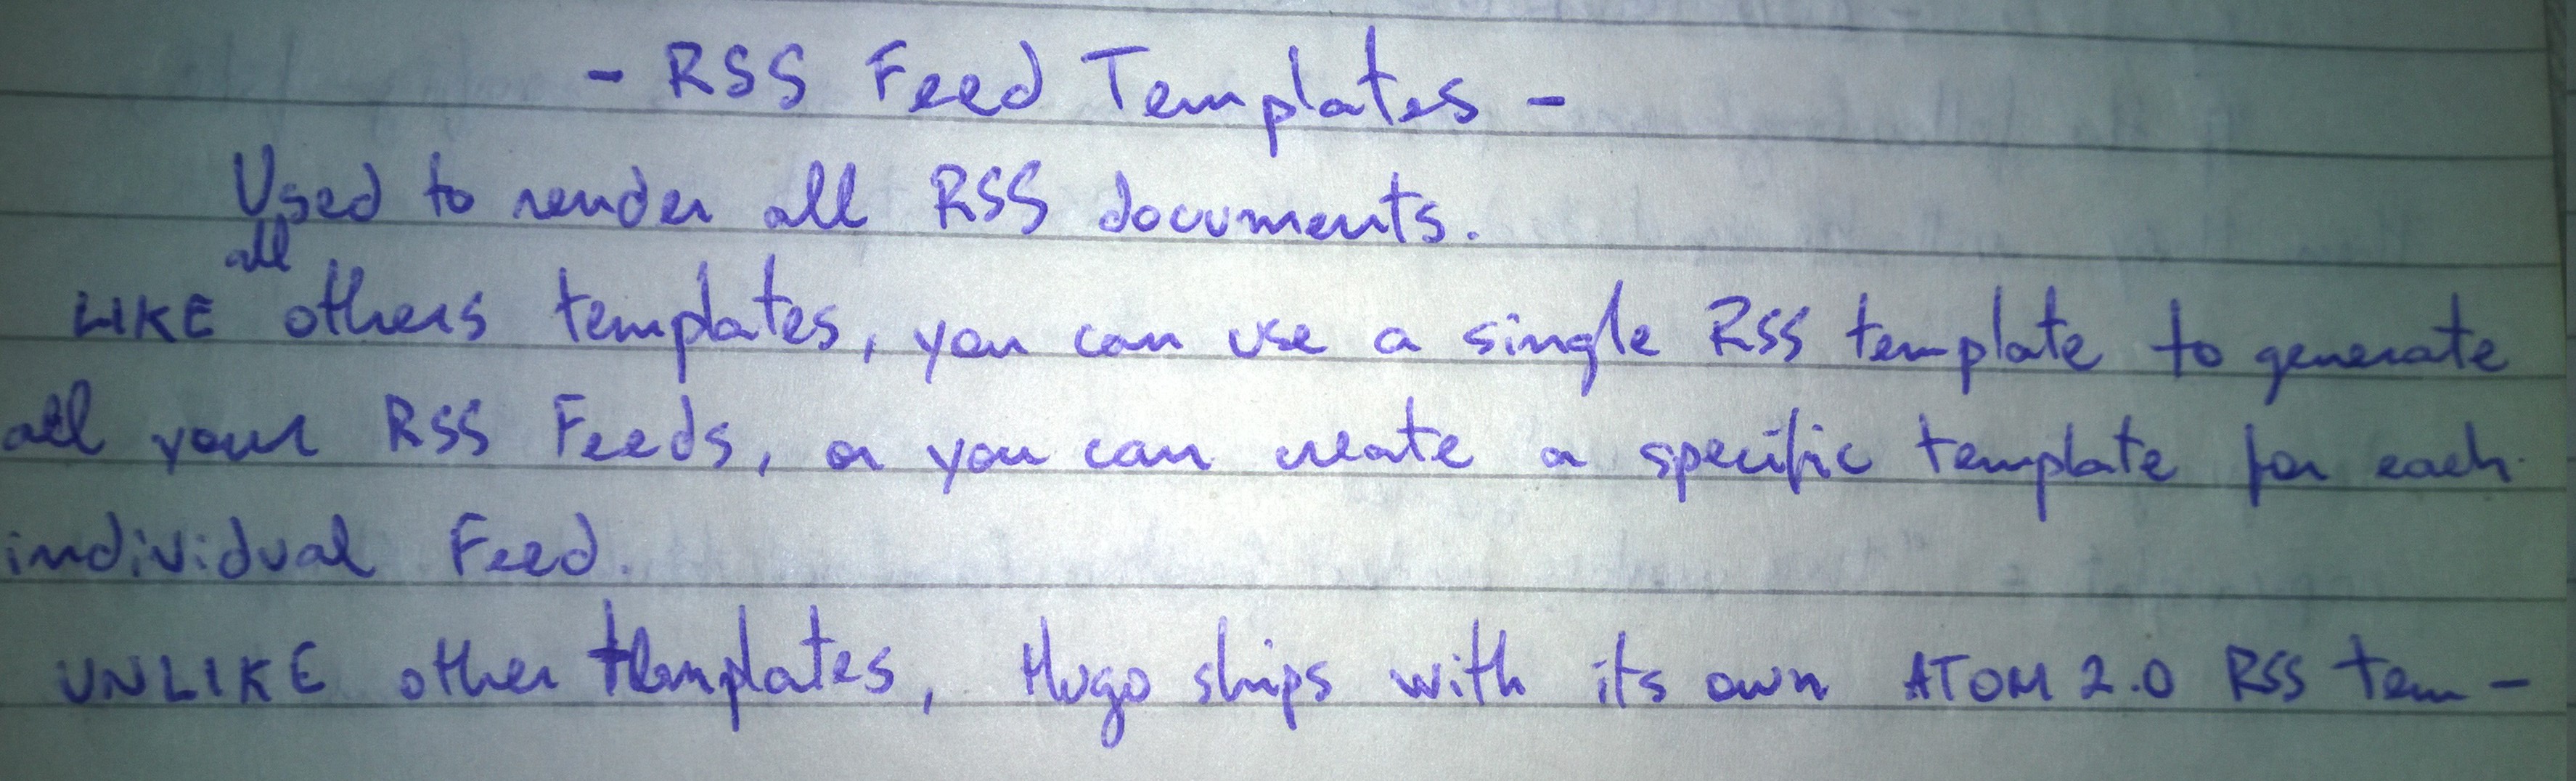 - RSS Feed Templates -
Used to render all RSS documents.
LIKE all others templates, you can use a single RSS template to generate
all your RSS Feeds, or you can create a specific template for each
individual Feed.
UNLIKE other templates, Hugo ships with its own ATOM 2.0 RSS tem-